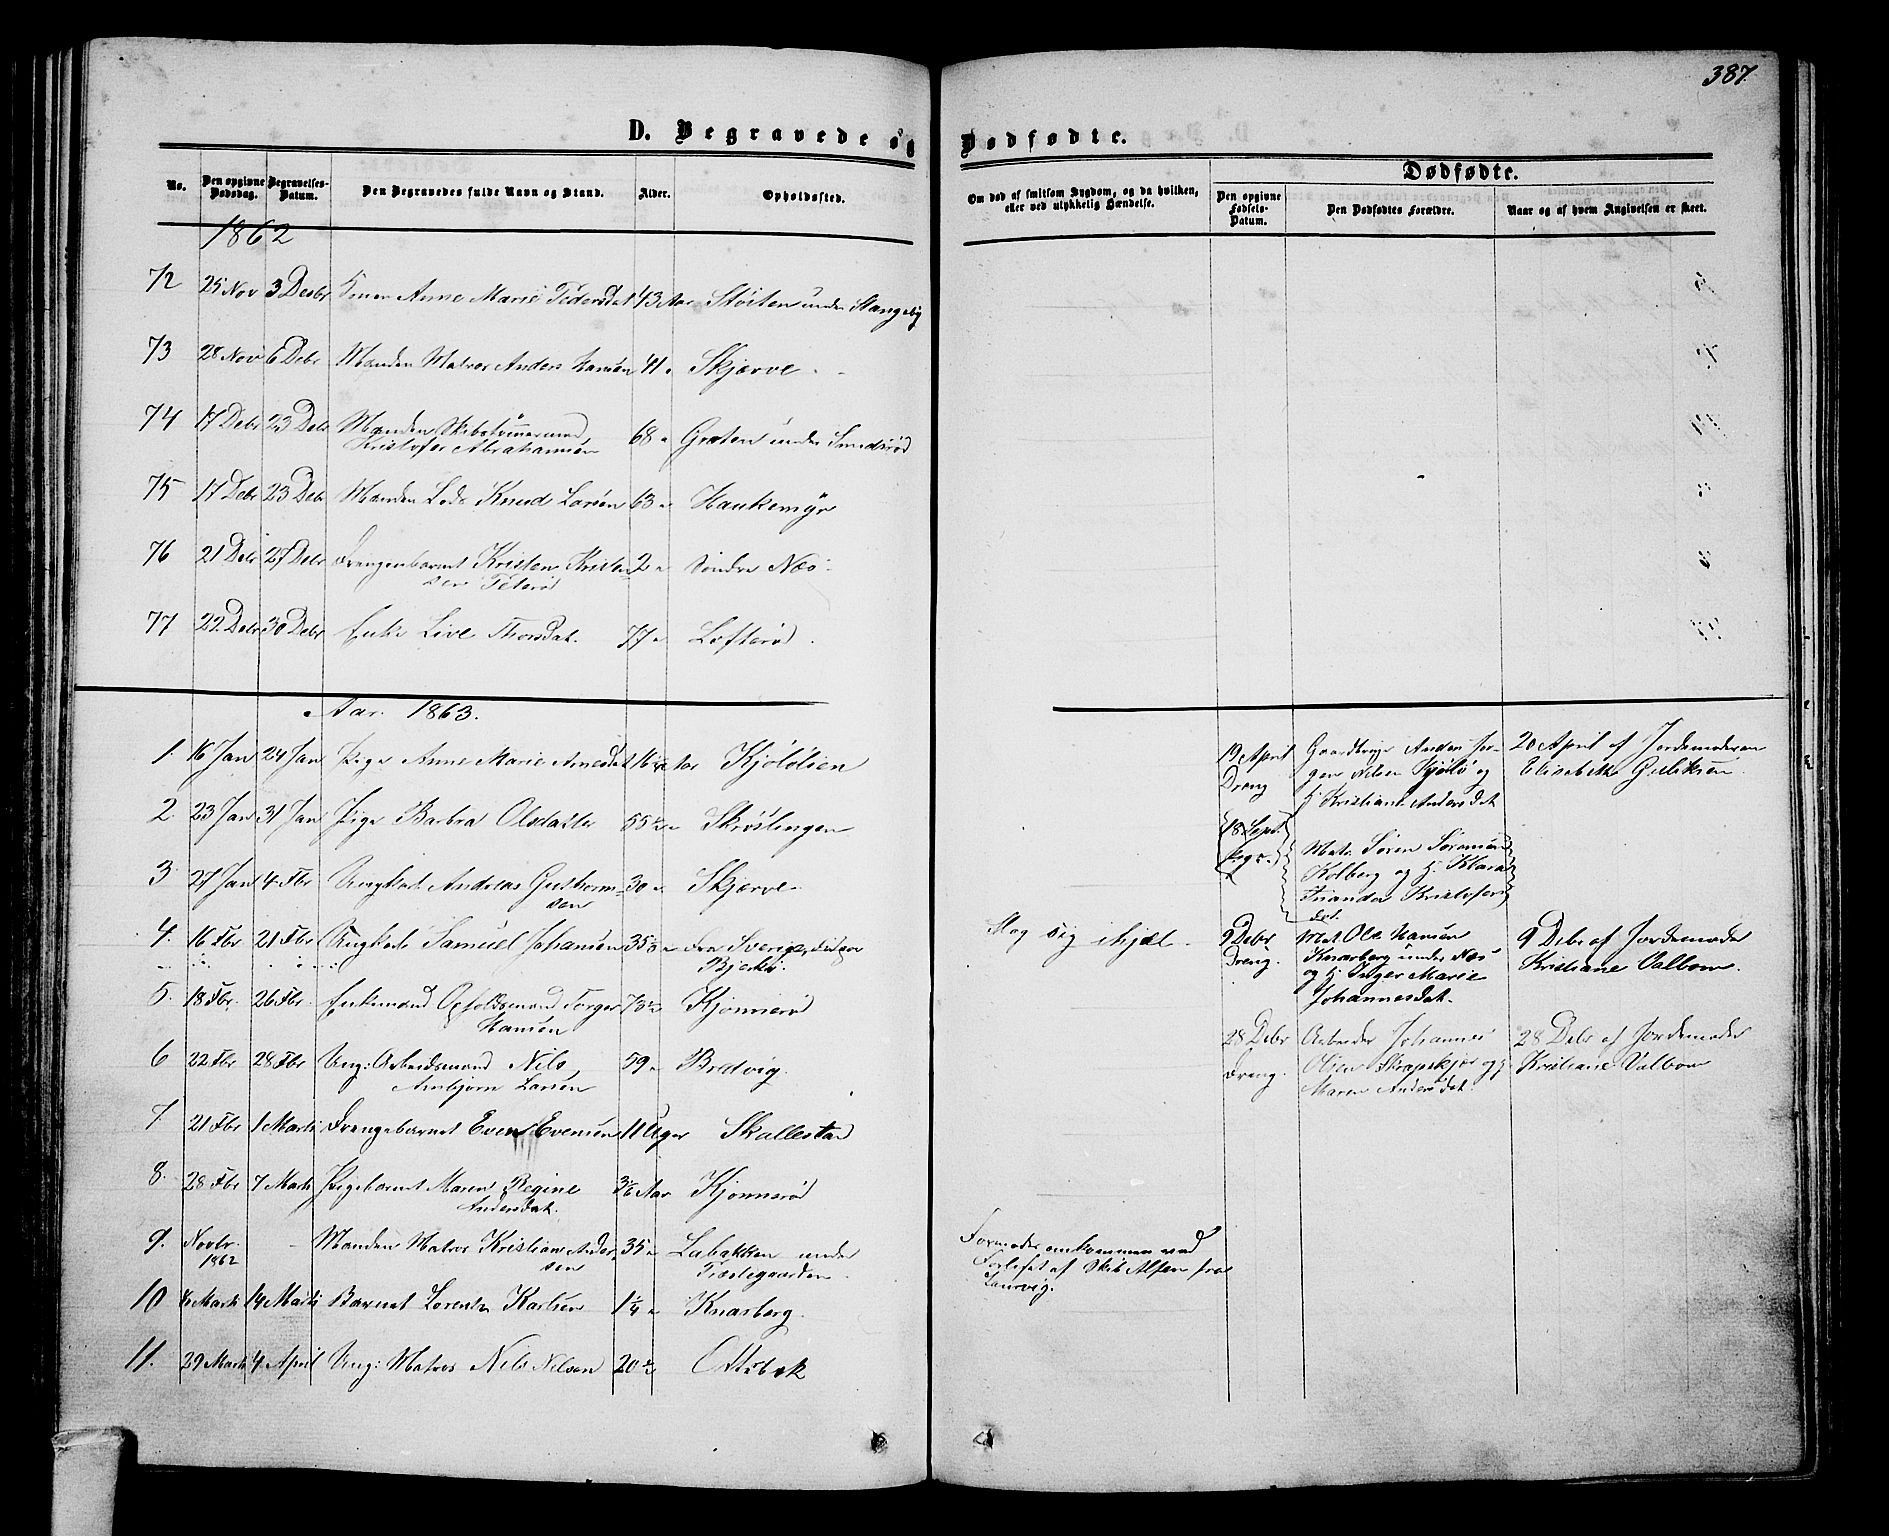 387.
D. Begravede og Dødfødte.
No.
Den opgivne Dødsdag.
Begravelses-Datum.
Den Begravedes fulde Navn og Stand.
Alder.
Opholdssted.
Om død af smitsom Sygdom, og da hvilken,
eller ved ulykkelig Hændelse.
Dødfødte.
Den opgivne Fødsels-Datum.
Den Dødfødtes Forældre.
Naar og af hvem Angivelsen er skeet.
1862
72 25 Nov 3 Decbr Anne Marie Pedersdat 43 Aar Støiten under Stangeby
73 28 Nov 6 Debr Manden Matros Anders Hansen 41 " Skjærve
74 17 Debr 23 Debr Manden Skibstømmermand
Kristofer Abrahamsen 68 " Grøten under Smidsrød
75 17 Debr 23 Debr Manden Lods Knud Larsen 63 " Haukemyr
76 21 Debr 27 Debr Drengenbarnet Kristen Kristen 2 " Søndre Næs
sen Peterød
77 22 Debr 30 Debr Enke Live Thorsdat. 77 " Lofterød
Aar. 1863.
1. 16 Jan 24 Jan Pige Anne Marie Arnesdat 16 Aar Kjøløien
2. 23 Jan 31 Jan Pige Barbra Olsdatter 55 ½ " Skrøslingen
3. 27 Jan 4 Fbr Ungkarl Andreas Guthorm- 30 " Skjærve
sen
4. 16 Fbr 21 Fbr Ungkarl Samuel Johansen 35 Fra Sverige,
Bjerkø. Slog sig ihjel
5. 18 Fbr. 26 Fbr. Enkemand Opholdsmand Torger 73 ½ Kjønnerød
Hansen
6 22 Fbr 28 Fbr Ung: Arbeidsmand Nils 59 " Bredvig.
Arnbjørn Larsen
7. 21 Fbr 1 Marts Drengebarnet Even Evensen 11 Uger Skallestad
8. 28 Fbr 7 Marts Pigebarnet Maren Regine 3/6 Aar Kjønnerød
Andersdat.
9. Novbr. 1862 - Manden Matros Kristian Ander- 35 " Labakken under
sen Præstegaarden
Formodes omkommen ved
Forliset af Skib Alfen fra
Laurvig.
10 8 Marts 14 Marts Barnet Lorents Karlsen 1 ¼ " Knarberg.
11. 29 Marts 4 April Ung: Matros Nils Nilsen 20 ½ Ottobek
19 April
Dreng
Gaardbruger Anders Jør-
gen Nilsen Kjøløs og
H. Kristiane Andersdat
20 April af Jordemoderen
Elisabeth Guliksen.
18 Sept.
Pige.
Matr. Søren Sørensen
Kolberg og H. Klara
Kristofers
dat.
9 Debr
Dreng.
Mat Ole Hansen
Knarberg under Næs
og H. Inger Marie
Johannesdat.
9 Debr af Jordemoder
Kristiane Valbom.
28 Debr
Dreng.
Arbeider Johannes
Olsen Skrapskjær og H
Maren Andersdat.
28 Debr af Jordemoder
Kristiane Valbom